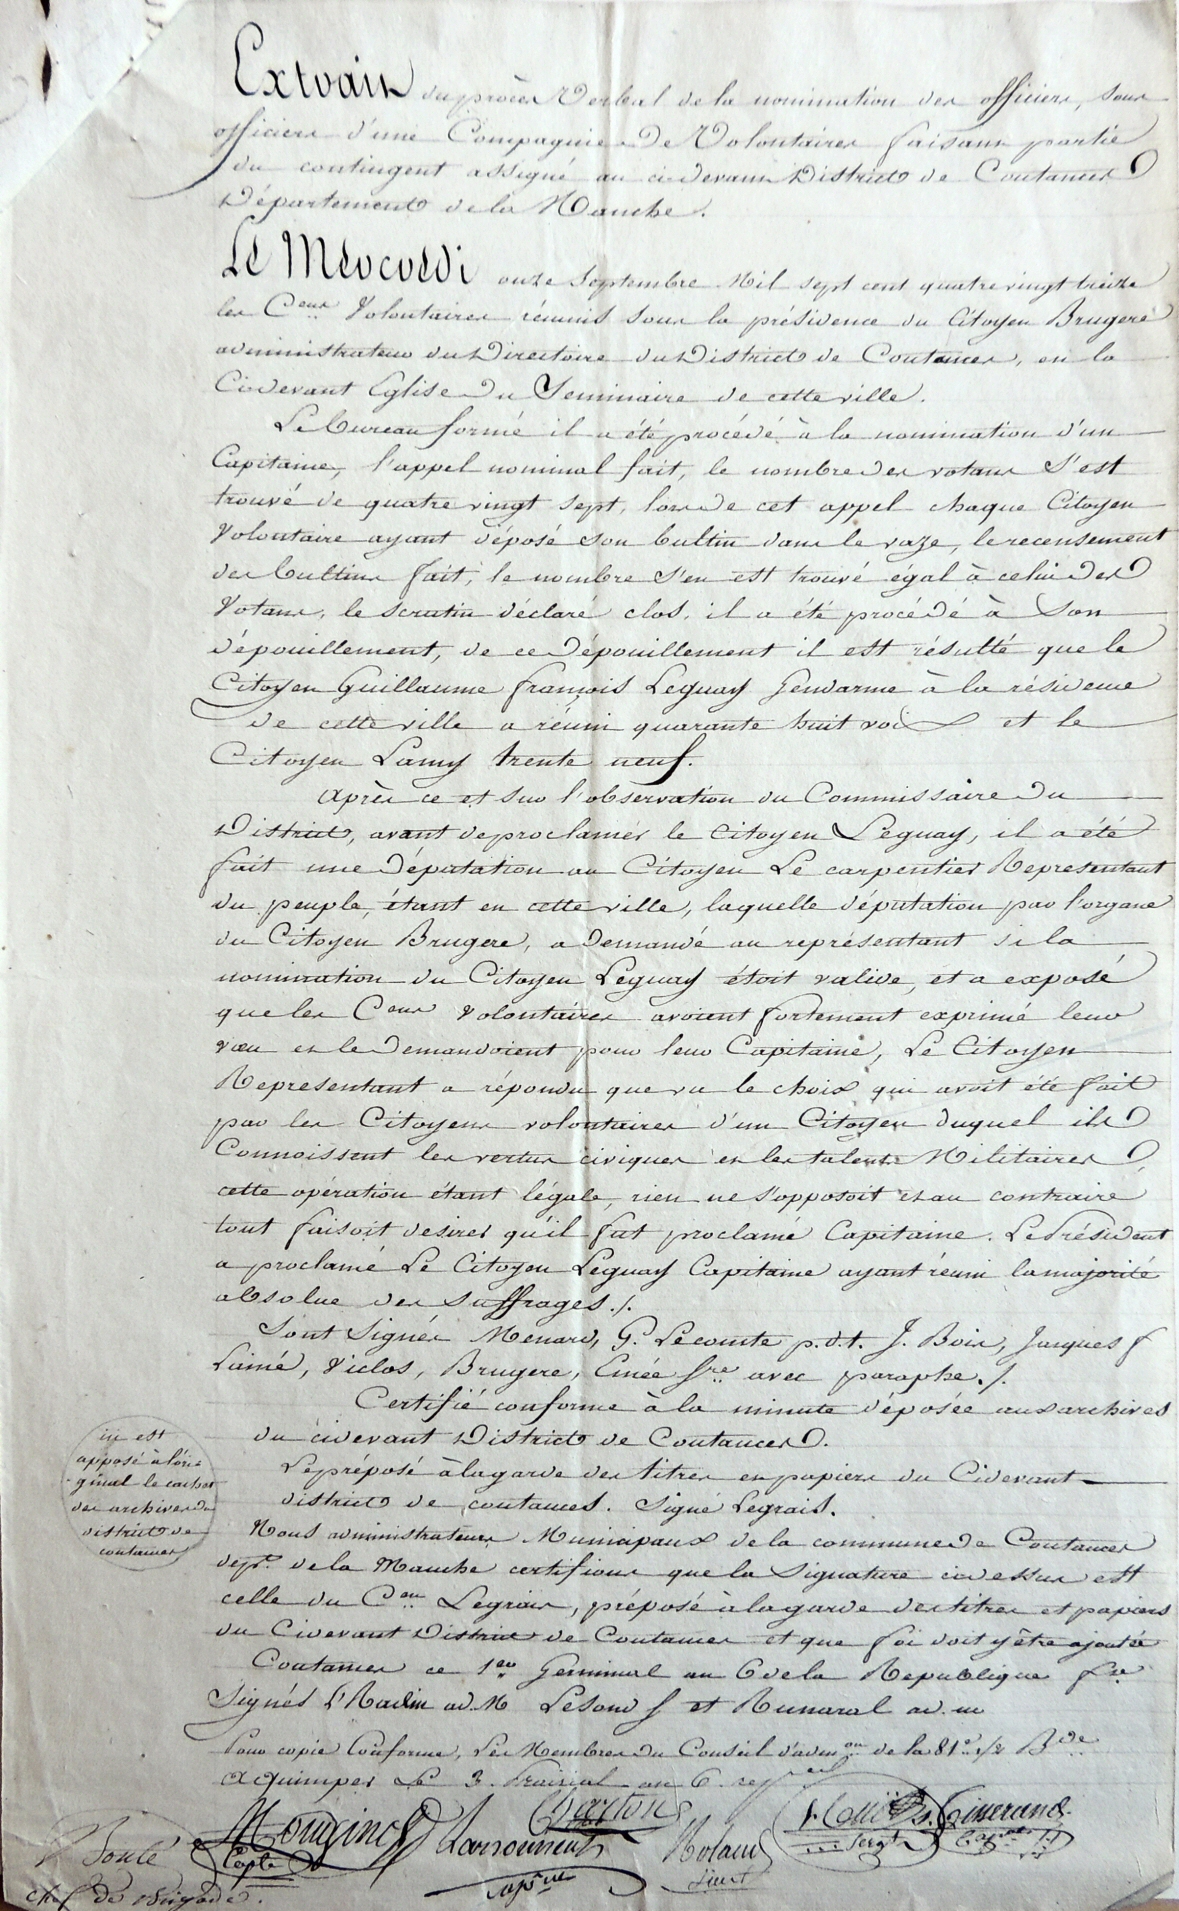 Extrait du procès Verbal de la nomination des officiers, sous
officiers d'une Compagnie de Volontaires faisant partie
du contingent assigné au ci devant District de Coutances
Département de la Manche.
Le Mercredi onze Septembre Mil sept cent quatre vingt treize
les C.ens Volontaires réunis sous la présidence du Citoyen Brugere
administrateur du Directoire du District de Coutances, en la
Cidevant Eglise du Seminaire de cette ville.
Le bureau formé il a été procédé à la nomination d'un
Capitaine, l'appel nominal fait, le nombre des votans s'est
trouvé de quatre vingt sept, lors de cet appel chaque Citoyen
Volontaire ayant déposé son bultin dans le vaze, le recensement
des bultins fait, le nombre s'en est trouvé égal à celui des
Votans, le scrutin déclaré clos, il a été procédé à son
dépouillement, de ce dépouillement il est résulté que le
Citoyen Guillaume françois Leguay Gendarme à la résidence
de cette ville a réuni quarante huit voix et le
Citoyen Lamy trente neuf.
Après ce et sur l'observation du Commissaire du
District, avant de proclamer le Citoyen Leguay, il a été
fait une Députation au Citoyen Le carpentier Representant
du peuple, étant en cette ville, laquelle députation par l'organe
du Citoyen Brugere, a Demandé au représentant si la
nomination du Citoyen Leguay étoit valide, et a exposé
que les C.ens Volontaires avoient fortement exprimé leur
vœu et le Demandoient pour leur Capitaine, Le Citoyen
Representant a répondu que vu le choix qui avoit été fait
par les Citoyens volontaires d'un Citoyen duquel ils
Connoissent les vertus civiques et les talents Militaires,
cette opération étant légale, rien ne s'opposoit et au contraire
tout faisoit desirer qu'il fut proclamé Capitaine. Le Président
a proclamé Le Citoyen Leguay Capitaine ayant réuni la majorité
absolue des suffrages./.
Sont Signés Menard, G. Lecomte p.d.t. J. Bois, Jacques f
Lainé, Viclos, Brugere, Emée S.re avec paraphe./.
Certifié conforme à la minute déposée aux archives
du cidevant District de Coutances.
Le préposé à la garde des titres et papiers du Cidevant
district de coutances. Signé Legrais.
ici est
apposé à l'ori=
ginal le cachet
des archives du
district de
coutances
Nous administrateurs Municipaux de la commune de Coutances
dep.t de la Manche certifions que la Signature cidessus est
celle du C.en Legrais, préposé à la garde des titres et papiers
du Cidevant District de Coutances et que foi doit y être ajoutée
Coutances ce 1.er Germinal an 6 de la Republique f.se
Signés ad. M et ad. m
Pour copie Conforme, Les Membres du Conseil d'adm.on de la 81.e 1/2 B.de
a Quimper Le 3. Prairial an 6. rep
Mouginot Barton
Capt.
Boulé Roland
Lieut
Serg.t
chef de Brigade.